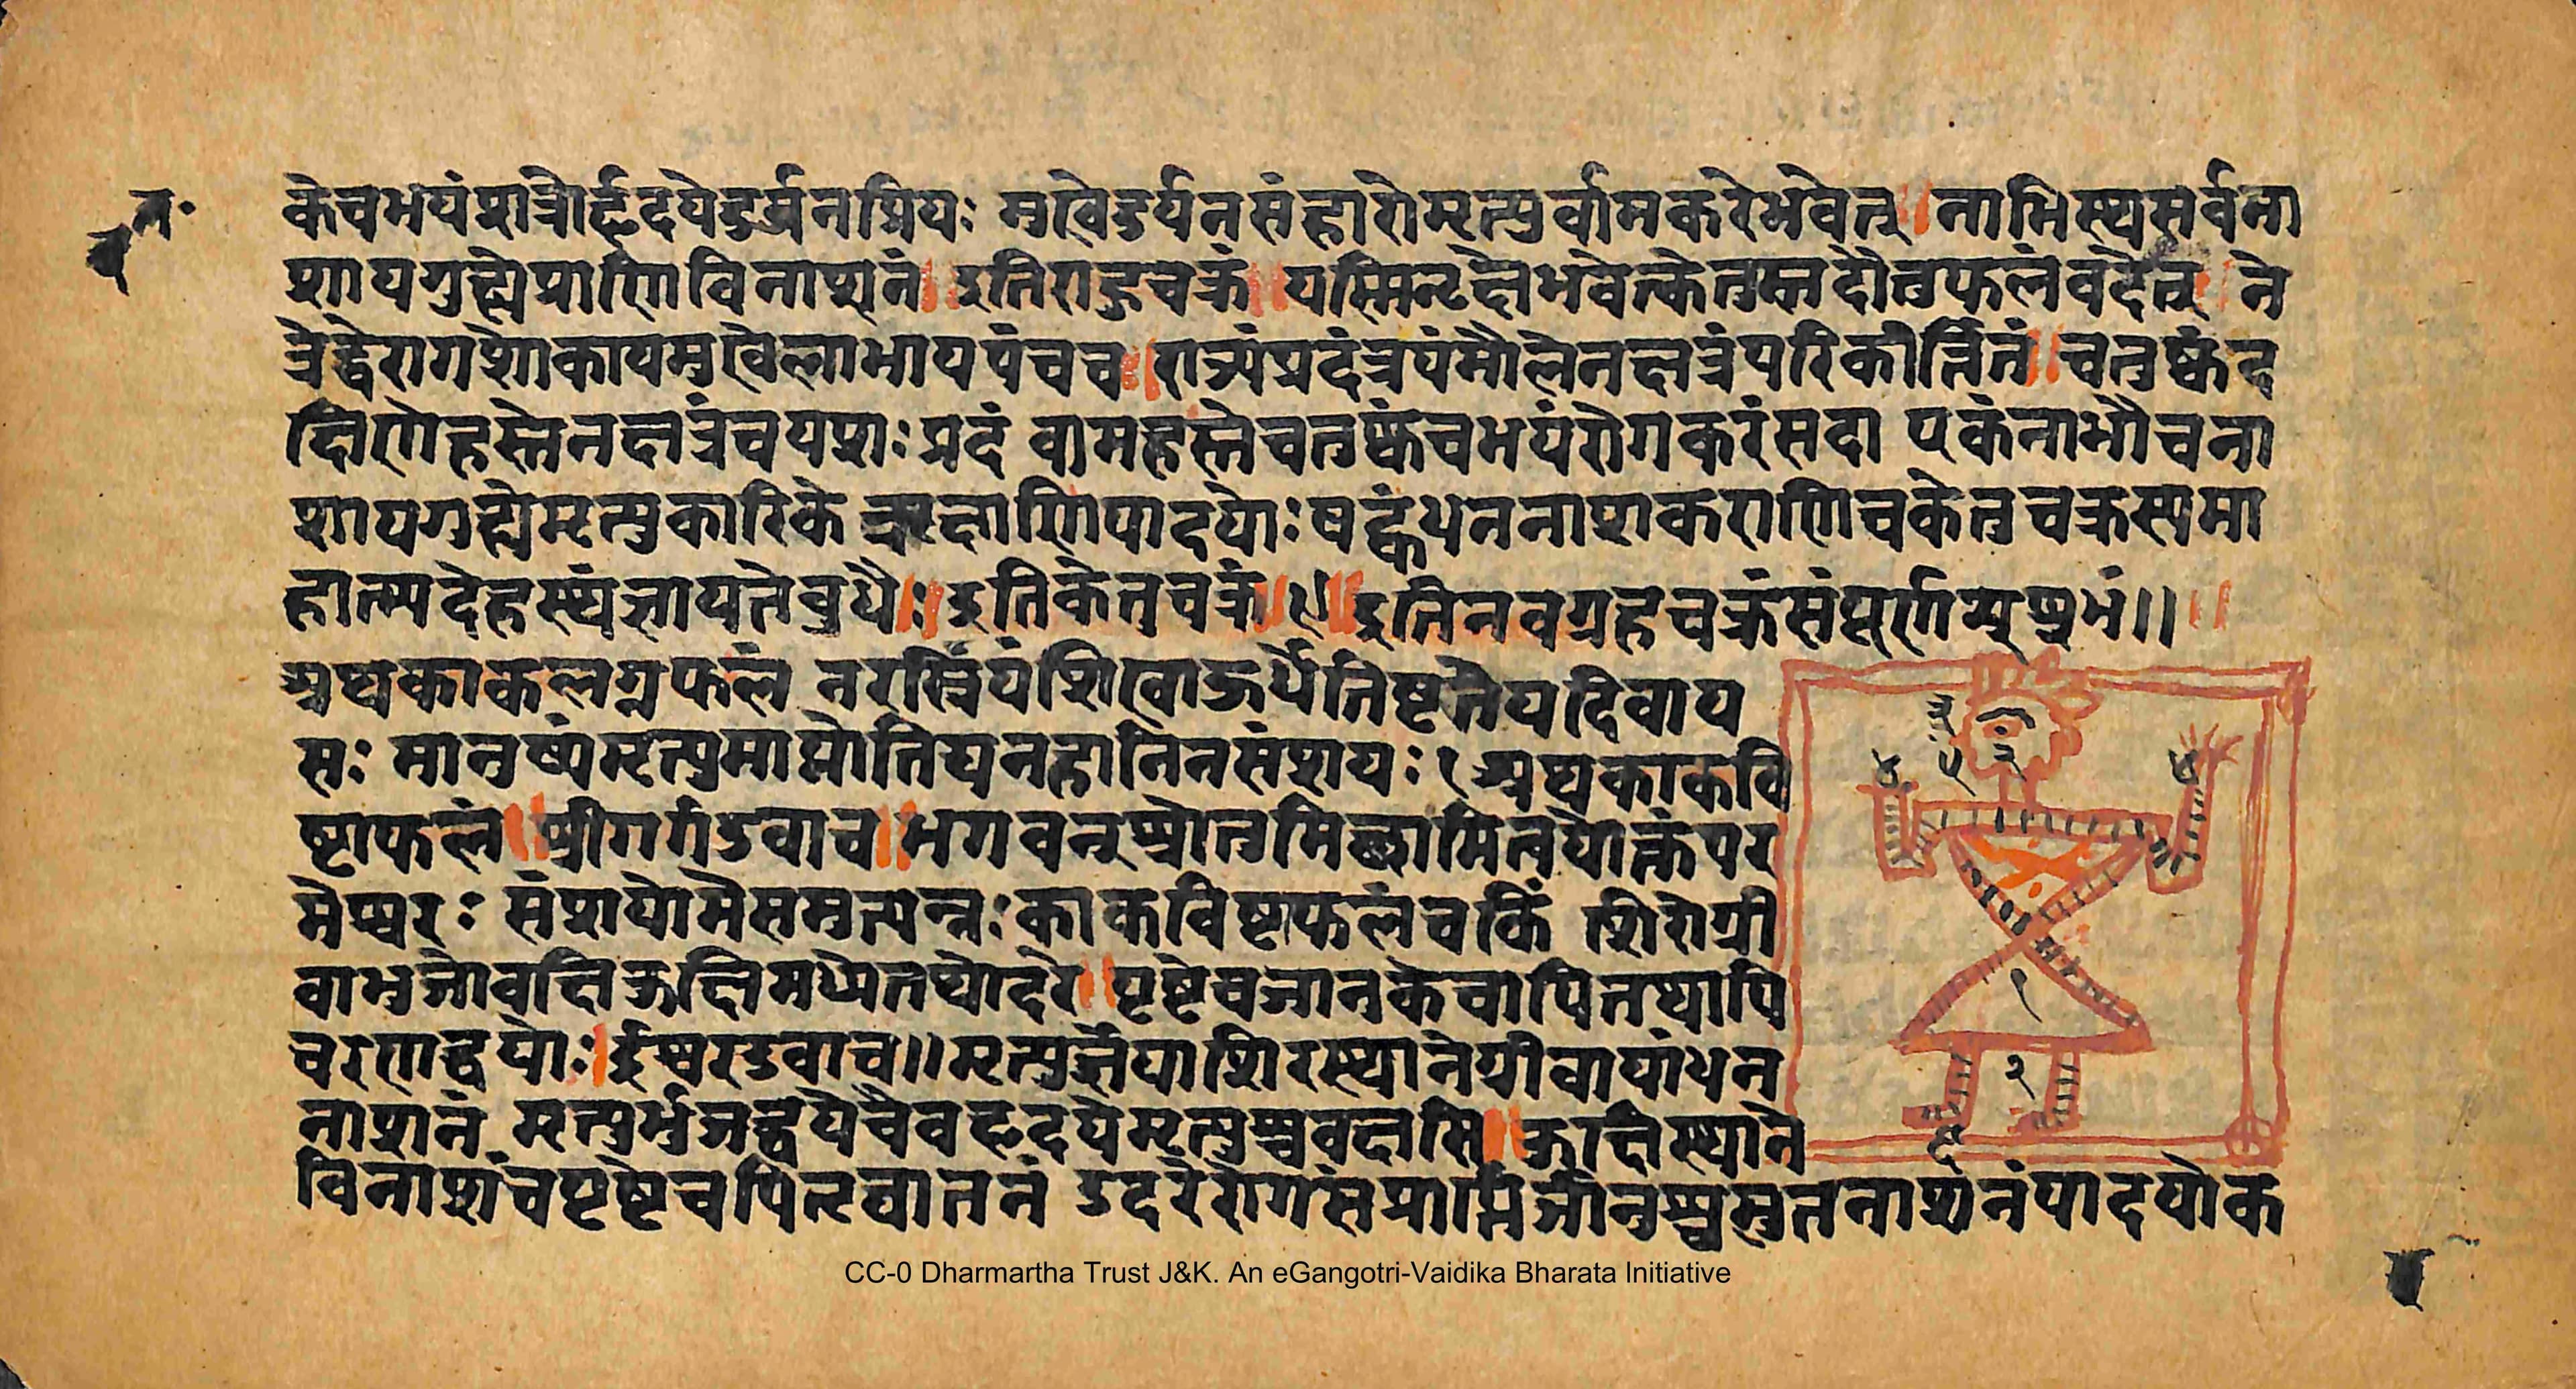 न॰
केचभयंशत्रोर्हृदयेदुर्जनप्रियः मुखेदुर्यनसंहारोमृत्युर्वामकरेभवेत् ॥ नाभिस्थसर्वना
शायगुह्येप्राणविनाशनं ॥ इतिराहुचक्रं ॥ यस्मिनृक्षेभवेत्केतुस्तदौतुफलंवदेत् ॥ ने
त्रेद्वेरागशोकायमुखेलाभायपंचच ॥ राज्यंप्रदंत्रयंमौलेनक्षत्रंपरिकीर्त्तितं ॥ चतुष्कंद
क्षिणेहस्तेनक्षत्रंचयशःप्रदं वामहस्तेचतुष्कंचभयंरोगकरंसदा एकंनाभौचना
शायगुह्येमृत्युकारिके ऋक्षाणिपादयोःषट्कंधननाशकराणिचकेतुचक्रस्यमा
हात्म्यदेहस्थंज्ञायतेबुधैः ॥ इतिकेतुचक्रं ॥ ९ ॥ इतिनवग्रहचक्रंसंपूर्णम्शुभं ॥ ॥
अथकाकलग्नफलं नरस्त्रियंशिखोऊर्धेतिष्टतेयदिवाय
सः मानुष्यंमृत्युमाप्नोतिधनहानिनसंशयः १ अथकाकवि
ष्टाफलं ॥ श्रीगर्गउवाच ॥ भगवन्श्रोतुमिछामित्वयोक्तंपर
मेश्वरः संशयोमेसमुत्पन्नःकाकविष्टाफलंचकिं शिरोग्री
वाभुजोवक्षिकुक्षिमध्येतथोदरे ॥ पृष्टेचजानुकेचापितथापि
चरणद्वयोः । ईश्वरउवाच ॥ मृत्युर्ज्ञेयाशिरस्थानेग्रीवायांधन
नाशनं मृत्युर्भुजद्वयेचैवहृदयेमृत्युश्चवक्षसि ॥ कुक्षिस्थाने
विनाशंचपृष्टेचपितृघातनं उदरेरोगसंप्राप्तिजानुश्चसुतनाशनंपादयोक
३
४
५
२
४
१
२
६
CC-0 Dharmartha Trust J&K. An eGangotri-Vaidika Bharata Initiative